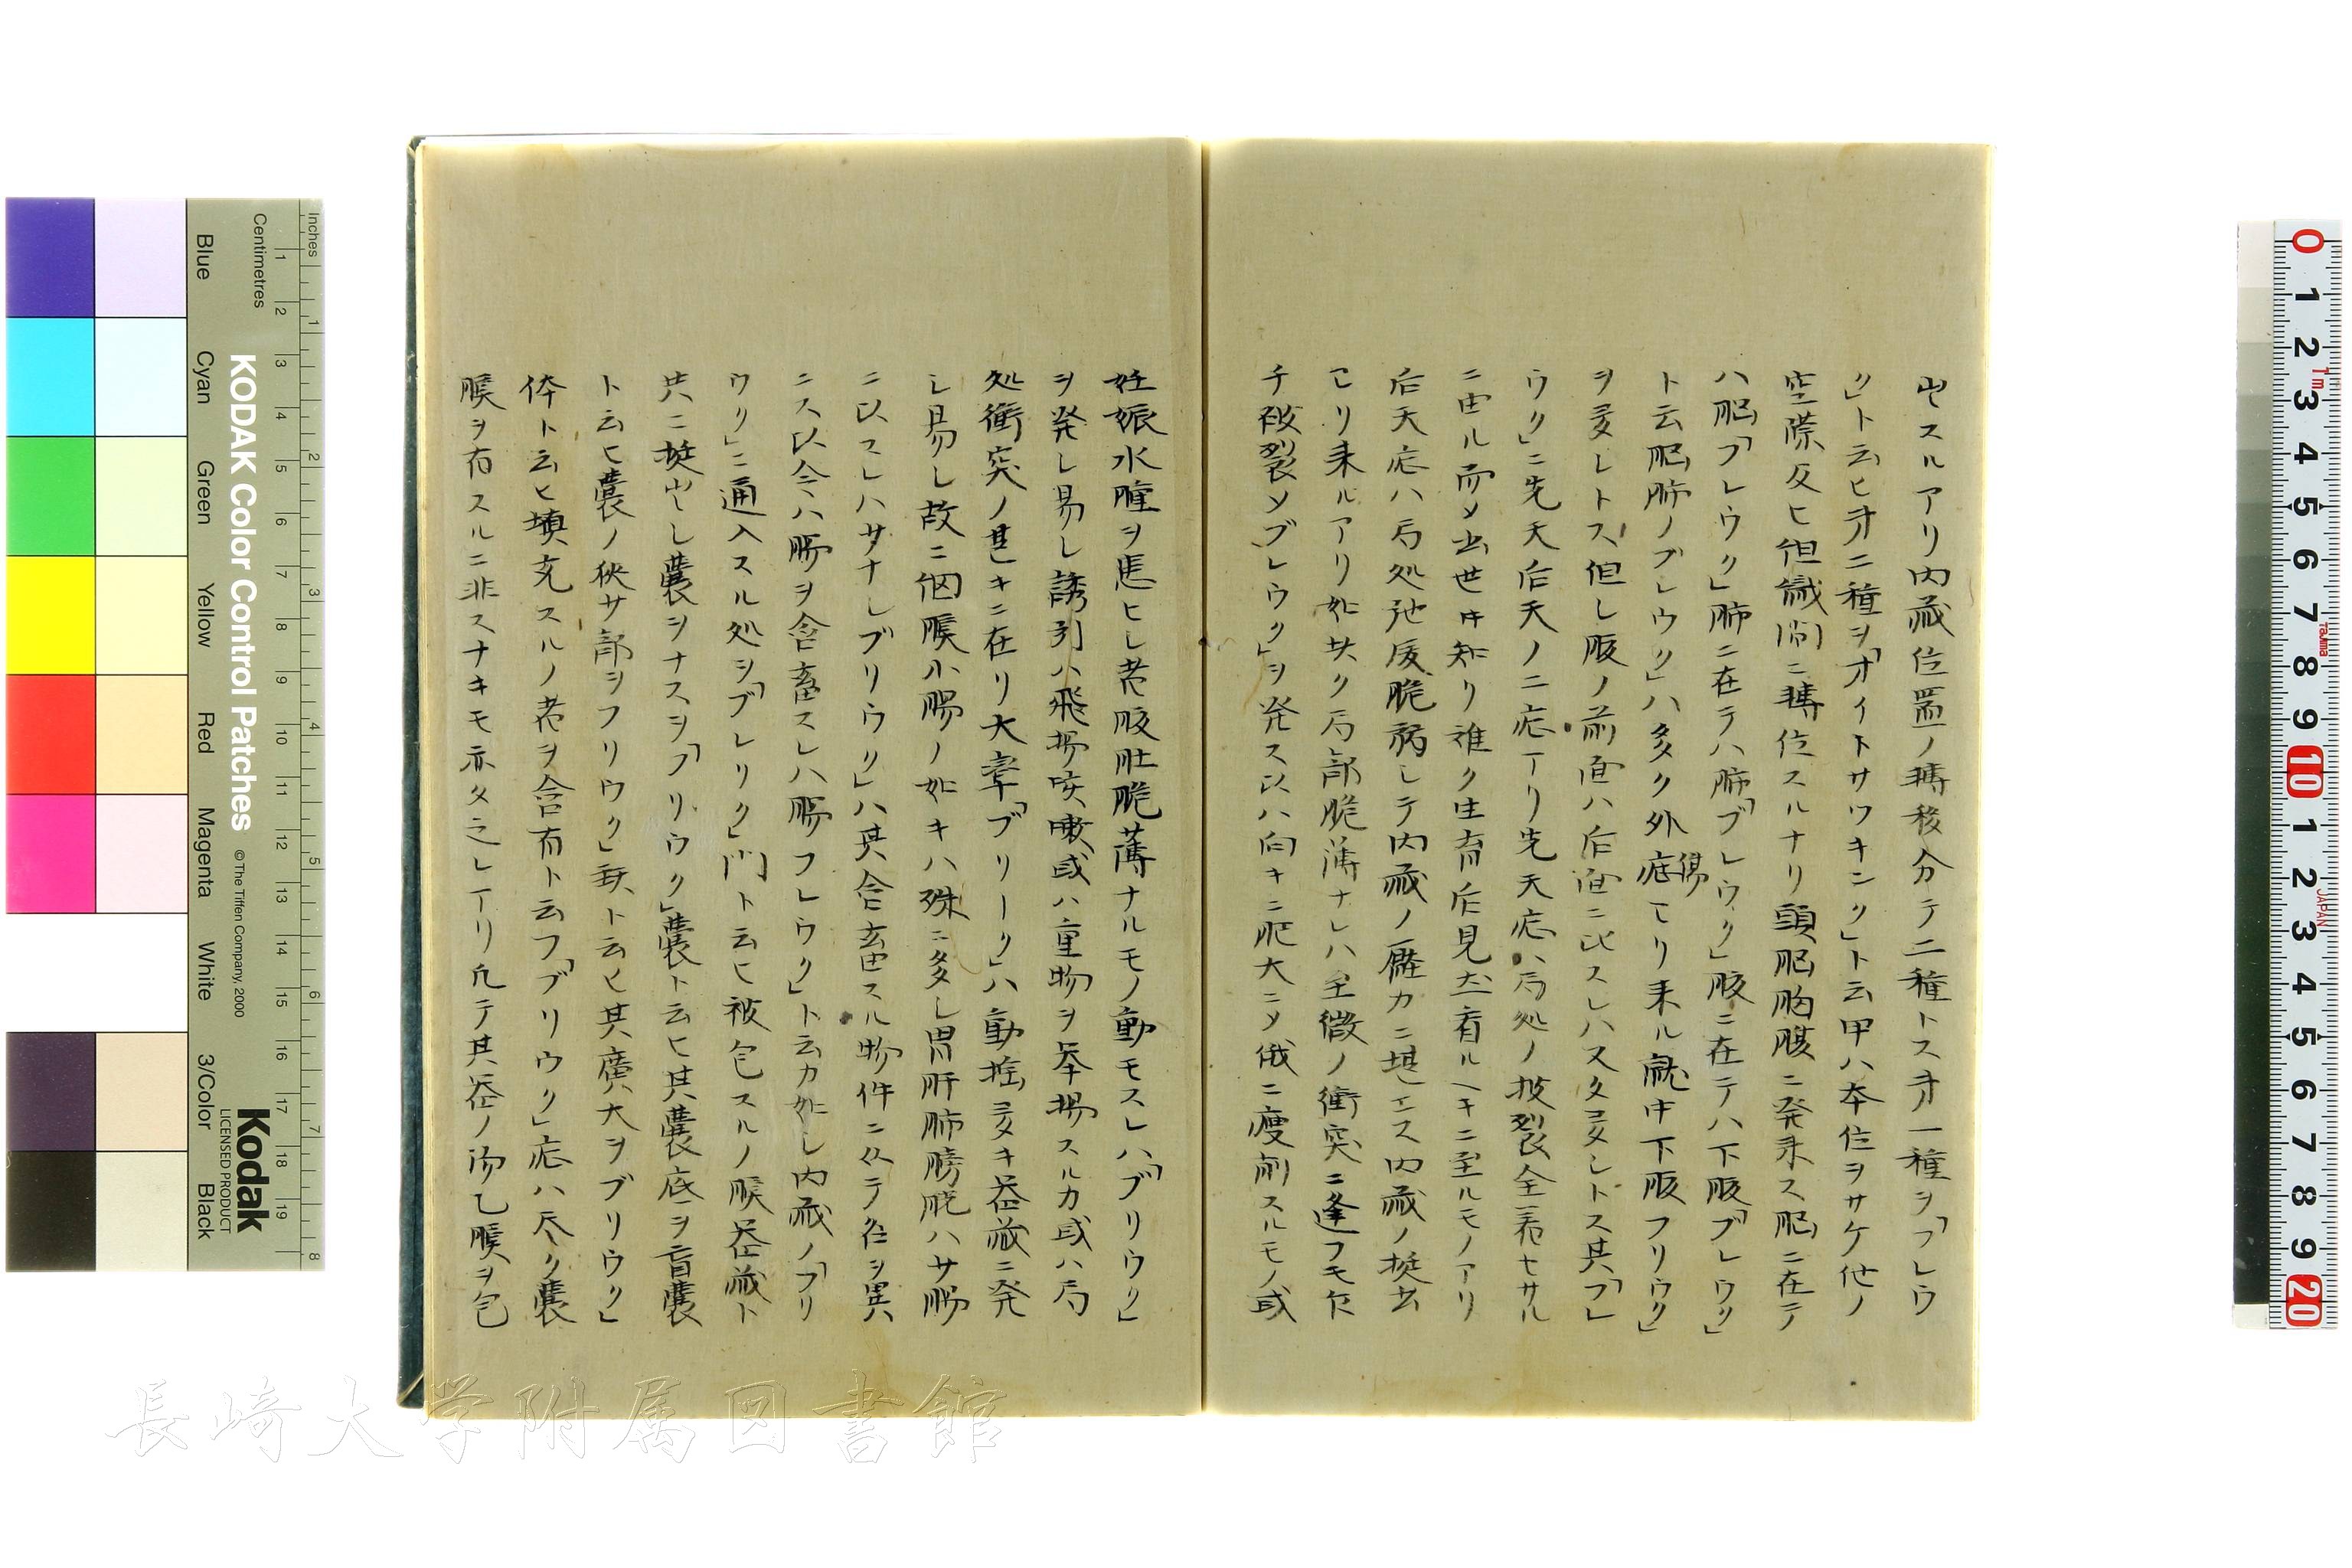 出スルアリ内蔵位置ノ轉移分テ二種トス才一種ヲ「フレウ
ク」ト云ヒ才二種ヲ「オイトサワキンク」ト云甲ハ本位ヲサケ他ノ
空隙及ヒ但織間ニ轉位スルナリ頭脳胸腹ニ発来ス脳ニ在テ
ハ脳「フレウク」肺ニ在テハ肺「ブレウク」腹ニ在テハ下腹「ブレウク」
ト云脳肺ノブレウク」ハ多ク外症ヨリ来ル就中下腹フリウク」
傷
ヲ多シトス但し腹ノ前面ハ后面ニ比スレハ又タ多シトス其「フレ
ウク」ニ先天后天ノ二症アリ先天症ハ局処ノ披裂全着セサル
ニ由ル而メ出世中知リ難ク生育后見ル
后天症ハ局処弛緩脆弱シテ内蔵ノ壓力ニ堪エス内蔵ノ挺出
ヨリ来ルアリ如此ク局部脆薄ナレハ至微ノ衝突ニ逢フモ乍
チ破裂メブレウク」ヲ発ス以ハ向キニ肥大ニメ俄ニ痩削スルモノ或
妊娠水腫ヲ患ヒシ者腹肚脆薄ナルモノ動モスレハ「ブリウク」
ヲ発シ易シ誘引ハ飛揚咳嗽或ハ重物ヲ挙揚スルカ或ハ局
処衝突ノ甚キニ在リ大率「ブリーク」ハ動揺多キ器蔵ニ発
シ易シ故ニ網膜小腸ノ如キハ殊ニ多シ胃肝肺膀胱ハサ腸
ニ以スレハサナシブリウク」ハ其含畜スル物件ニ从テ名ヲ異
ニス以今ハ腸ヲ含畜スレハ腸フレウク」ト云カ如シ内蔵ノ「フリ
ウク」ニ通入スル処ヲ「ブレリク」門ト云ヒ被包スルノ膜器蔵ト
共ニ挺出シ嚢ヲナスヲ「フリウク」嚢ト云ヒ其嚢底ヲ盲嚢
ト云ヒ嚢ノ狹サ部ヲフリウク」頸ト云ヒ其廣大ヲブリウク」
体ト云ヒ填充スルノ者ヲ含有ト云フ「ブリウク」症ハ尽ク嚢
膜ヲ有スルニ非スナキモ亦タ之レアリ凡テ其器ノ沕乙膜ヲ包
Inches
Centimetres
Blue
Cyan
Green
Yellow
Red
Magenta
White
3/Color
Black
KODAK Color Control Patches
©The Tiffen Company, 2000
Kodak
LICENSED PRODUCT
1
2
3
4
5
6
7
8
9
10
11
12
13
14
15
16
17
18
19
1
2
3
4
5
6
7
8
0 1 2 3 4 5 6 7 8 9 10 1 2 3 4 5 6 7 8 9 20
1m
Tajima
JAPAN
長崎大学附属図書館